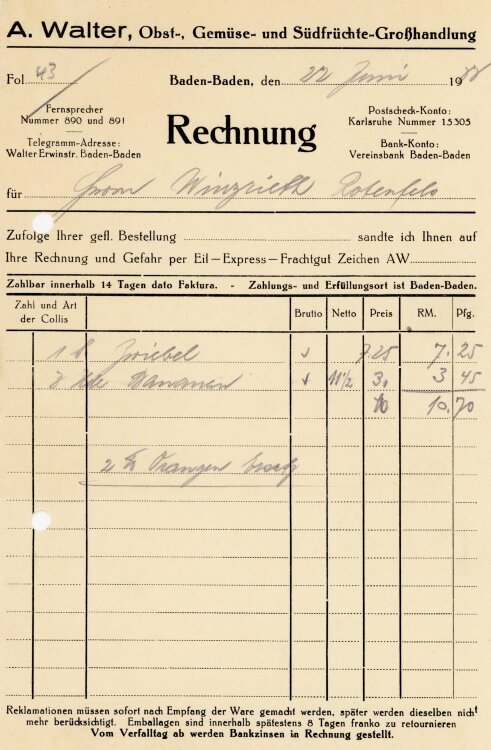 A. Walter, Obst-, Gemüse- und Südfrüchte-Großhandlung
Fol. 43
Baden-Baden, den 22 Juni 19
Fernsprecher
Nummer 890 und 891
Telegramm-Adresse:
Walter Erwinstr. Baden-Baden
Rechnung
Postscheck-Konto:
Karlsruhe Nummer 15305
Bank-Konto:
Vereinsbank Baden-Baden
für Rotenfels
Zufolge Ihrer gefl. Bestellung sandte ich Ihnen auf
Ihre Rechnung und Gefahr per Eil—Express—Frachtgut Zeichen AW
Zahlbar innerhalb 14 Tagen dato Faktura. - Zahlungs- und Erfüllungsort ist Baden-Baden.
Zahl und Art der Collis Brutto Netto Preis RM. Pfg.
1 Zwiebel 7.25 7. 25
Bananen 11 1/2 3 45
10. 70
2 Orangen
Reklamationen müssen sofort nach Empfang der Ware gemacht werden, später werden dieselben nicht
mehr berücksichtigt. Emballagen sind innerhalb spätestens 8 Tagen franko zu retournieren
Vom Verfalltag ab werden Bankzinsen in Rechnung gestellt.